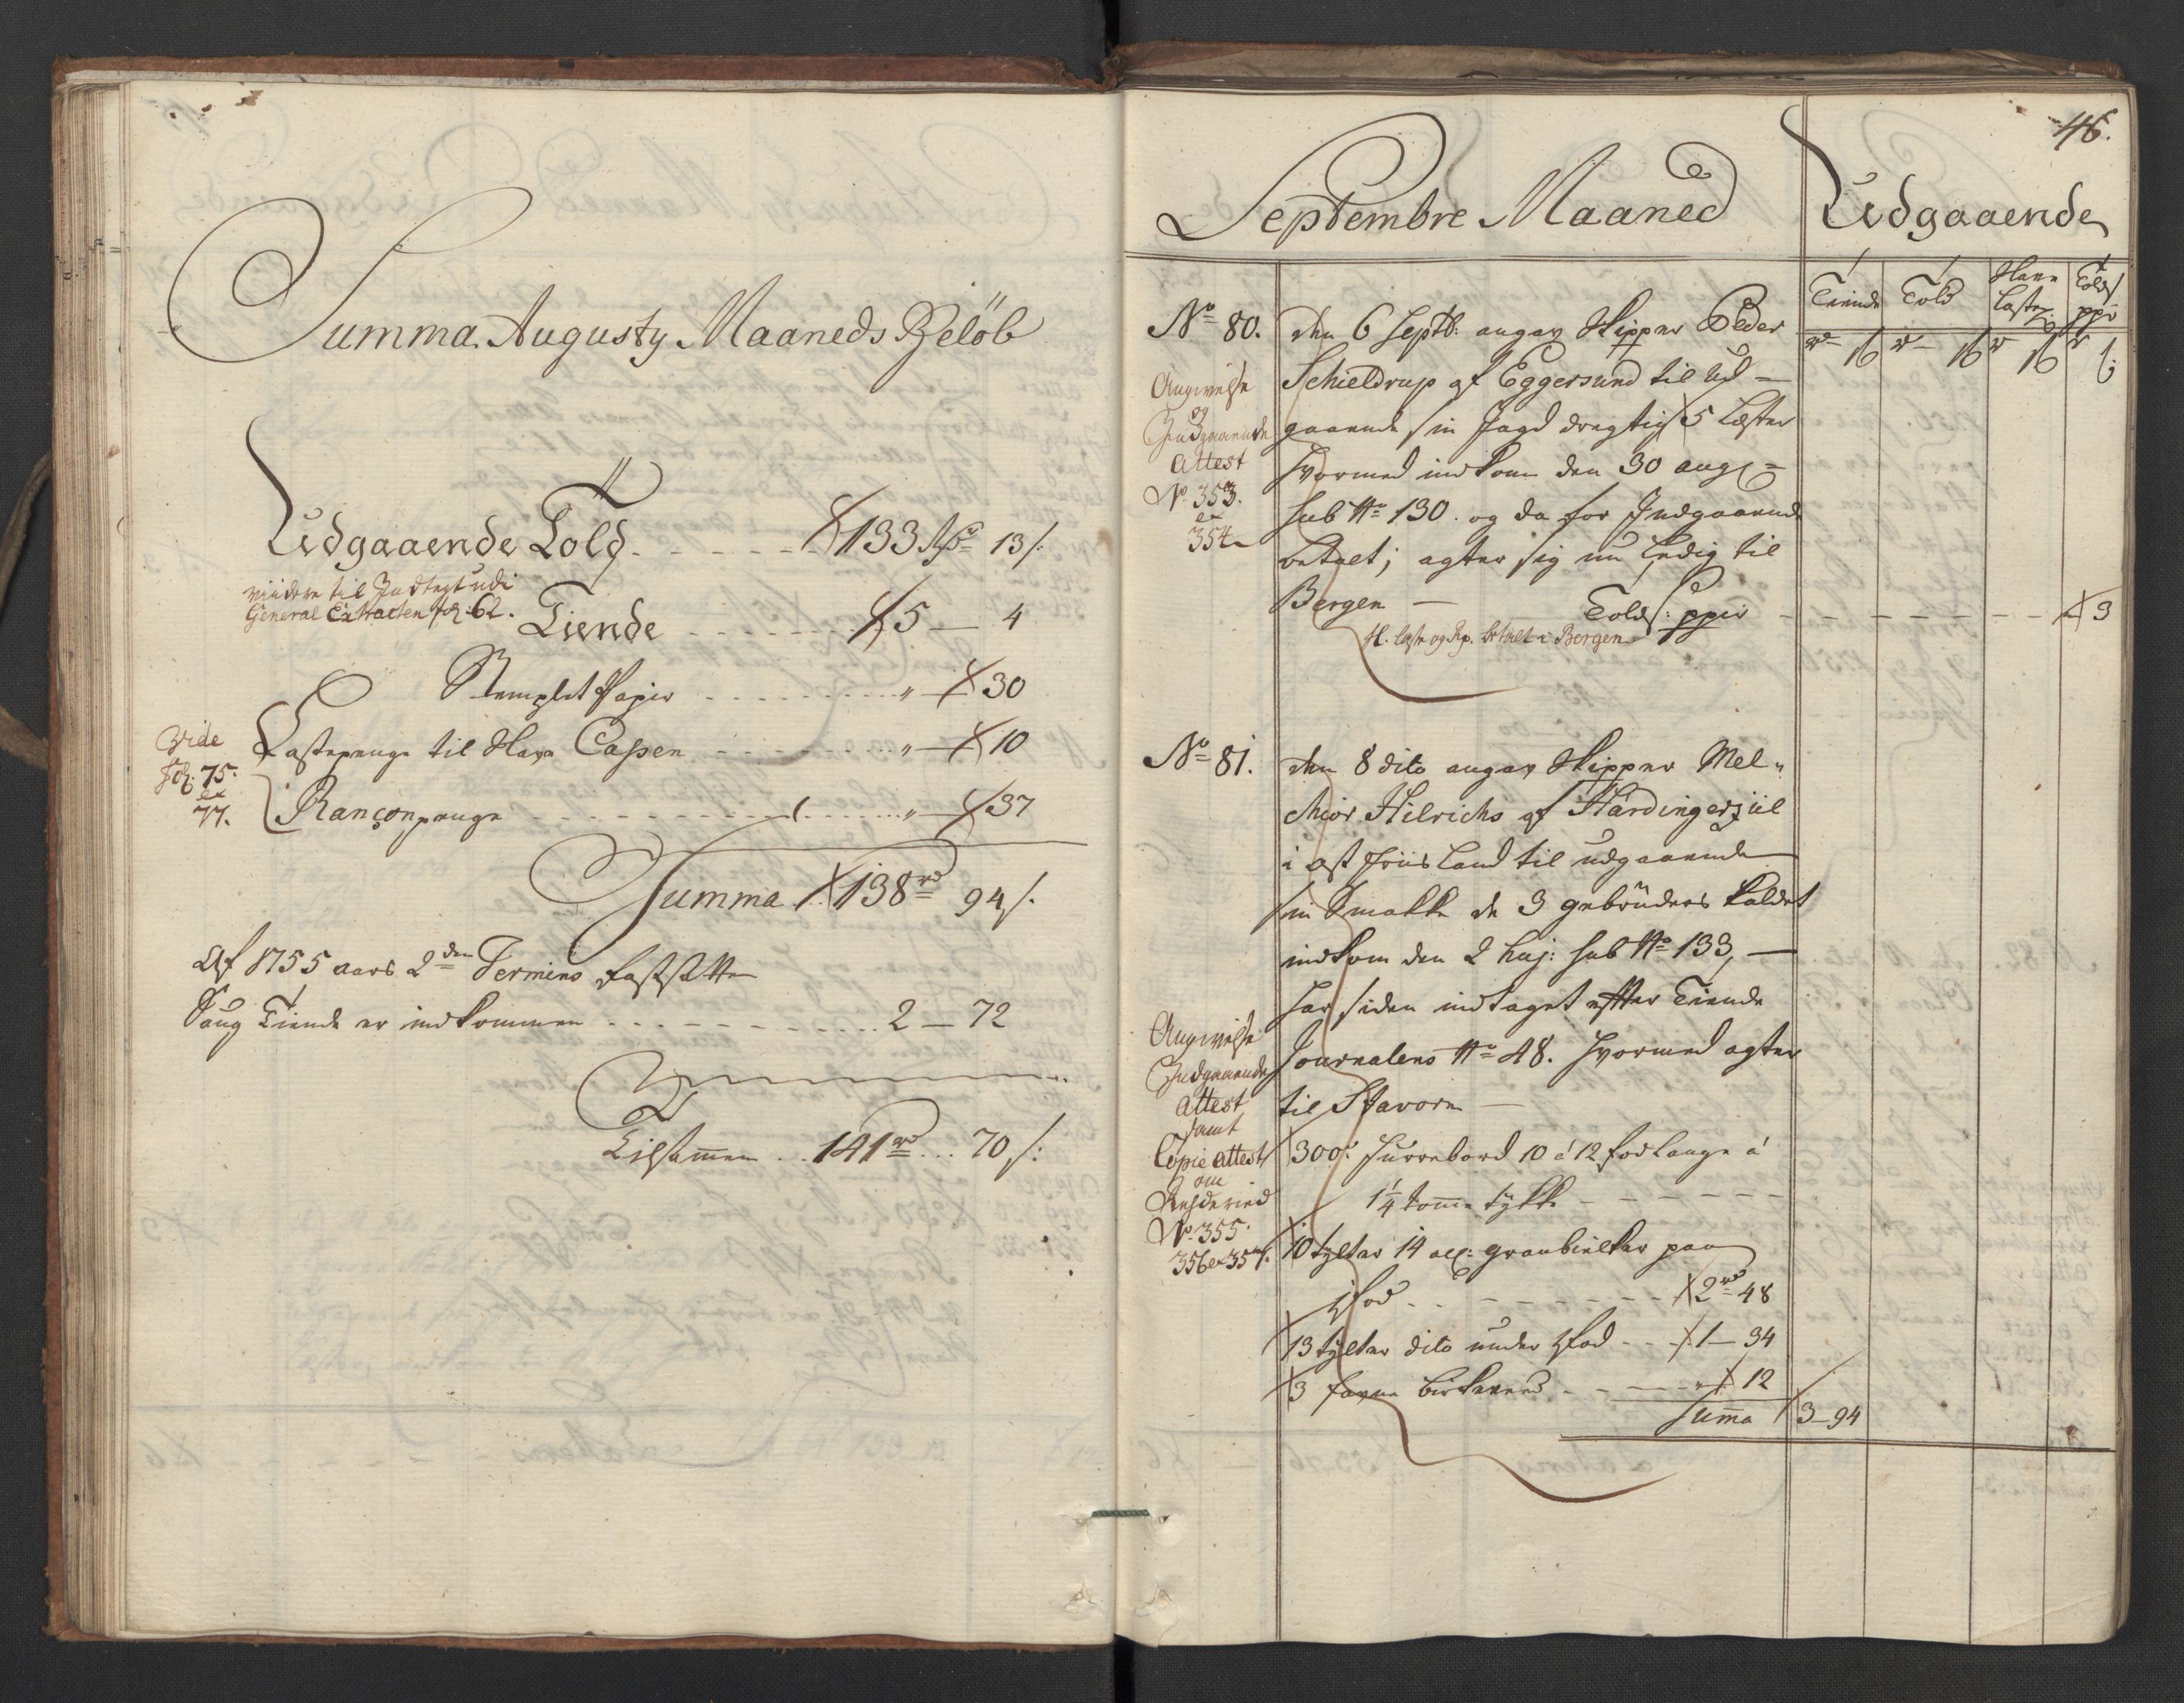 Summa Augusty Maaneds Beløb
Udgaaende Told 133 Rdr 13 s:
viidere til Indtegt udi
General Extracten fol: 62.
Tiende 5 — 4
Stemplet Papir " — 30
Vide
fol: 75.
et
77.
Lastepenge til Havn Cassen " — 10
Rançonpenge " — 37
Summa 138 rd 94 s.
Af 1755 aars 2den Termins fastsatte
Saug Tiende er indkommen 2 — 72
Tilsammen 141 rd 70 s:
46.
Septembre Maaned
Udgaaende
Tiende Told Havn Laste Told s ppr
No 80.
Angivelse
og
Indgaaende
Attest
No 353.
et
354
Den 6 Septb: angav Skipper Peder
Schieldrup af Eggersund til ud-
gaaende sin Jagd drægtig 5 Læster
hvormed indkom den 30 aug:
sub No 130. og da for Indgaaende
betalt; agter sig nu Ledig til
Bergen —
Told s: ppir 3
H. laste og Rp. betalt i Bergen
No 81.
Angivelse
Indgaaende
Attest
samt
Copie attest
om
No 355.
356 et 357.
Den 8 dito angav Skipper Mel-
chior Hilrichs af Hardingerziil
i ost Friisland til udgaaende
sin Smakke de 3 gebrüders kaldet
indkom den 2 huj: sub No 133, —
har siden indtaget efter Tiende
Journalens No 48. hvormed agter
til Stavorn —
300: furrebord 10 á 12 fod lange á
1 1/4 tomme tykke
10 tylter 14 al: granbielker paa
fod 2 rd 48
13 tylter dito under fod 1 — 34
3 favne birkeved " 12
Summa 3 — 94